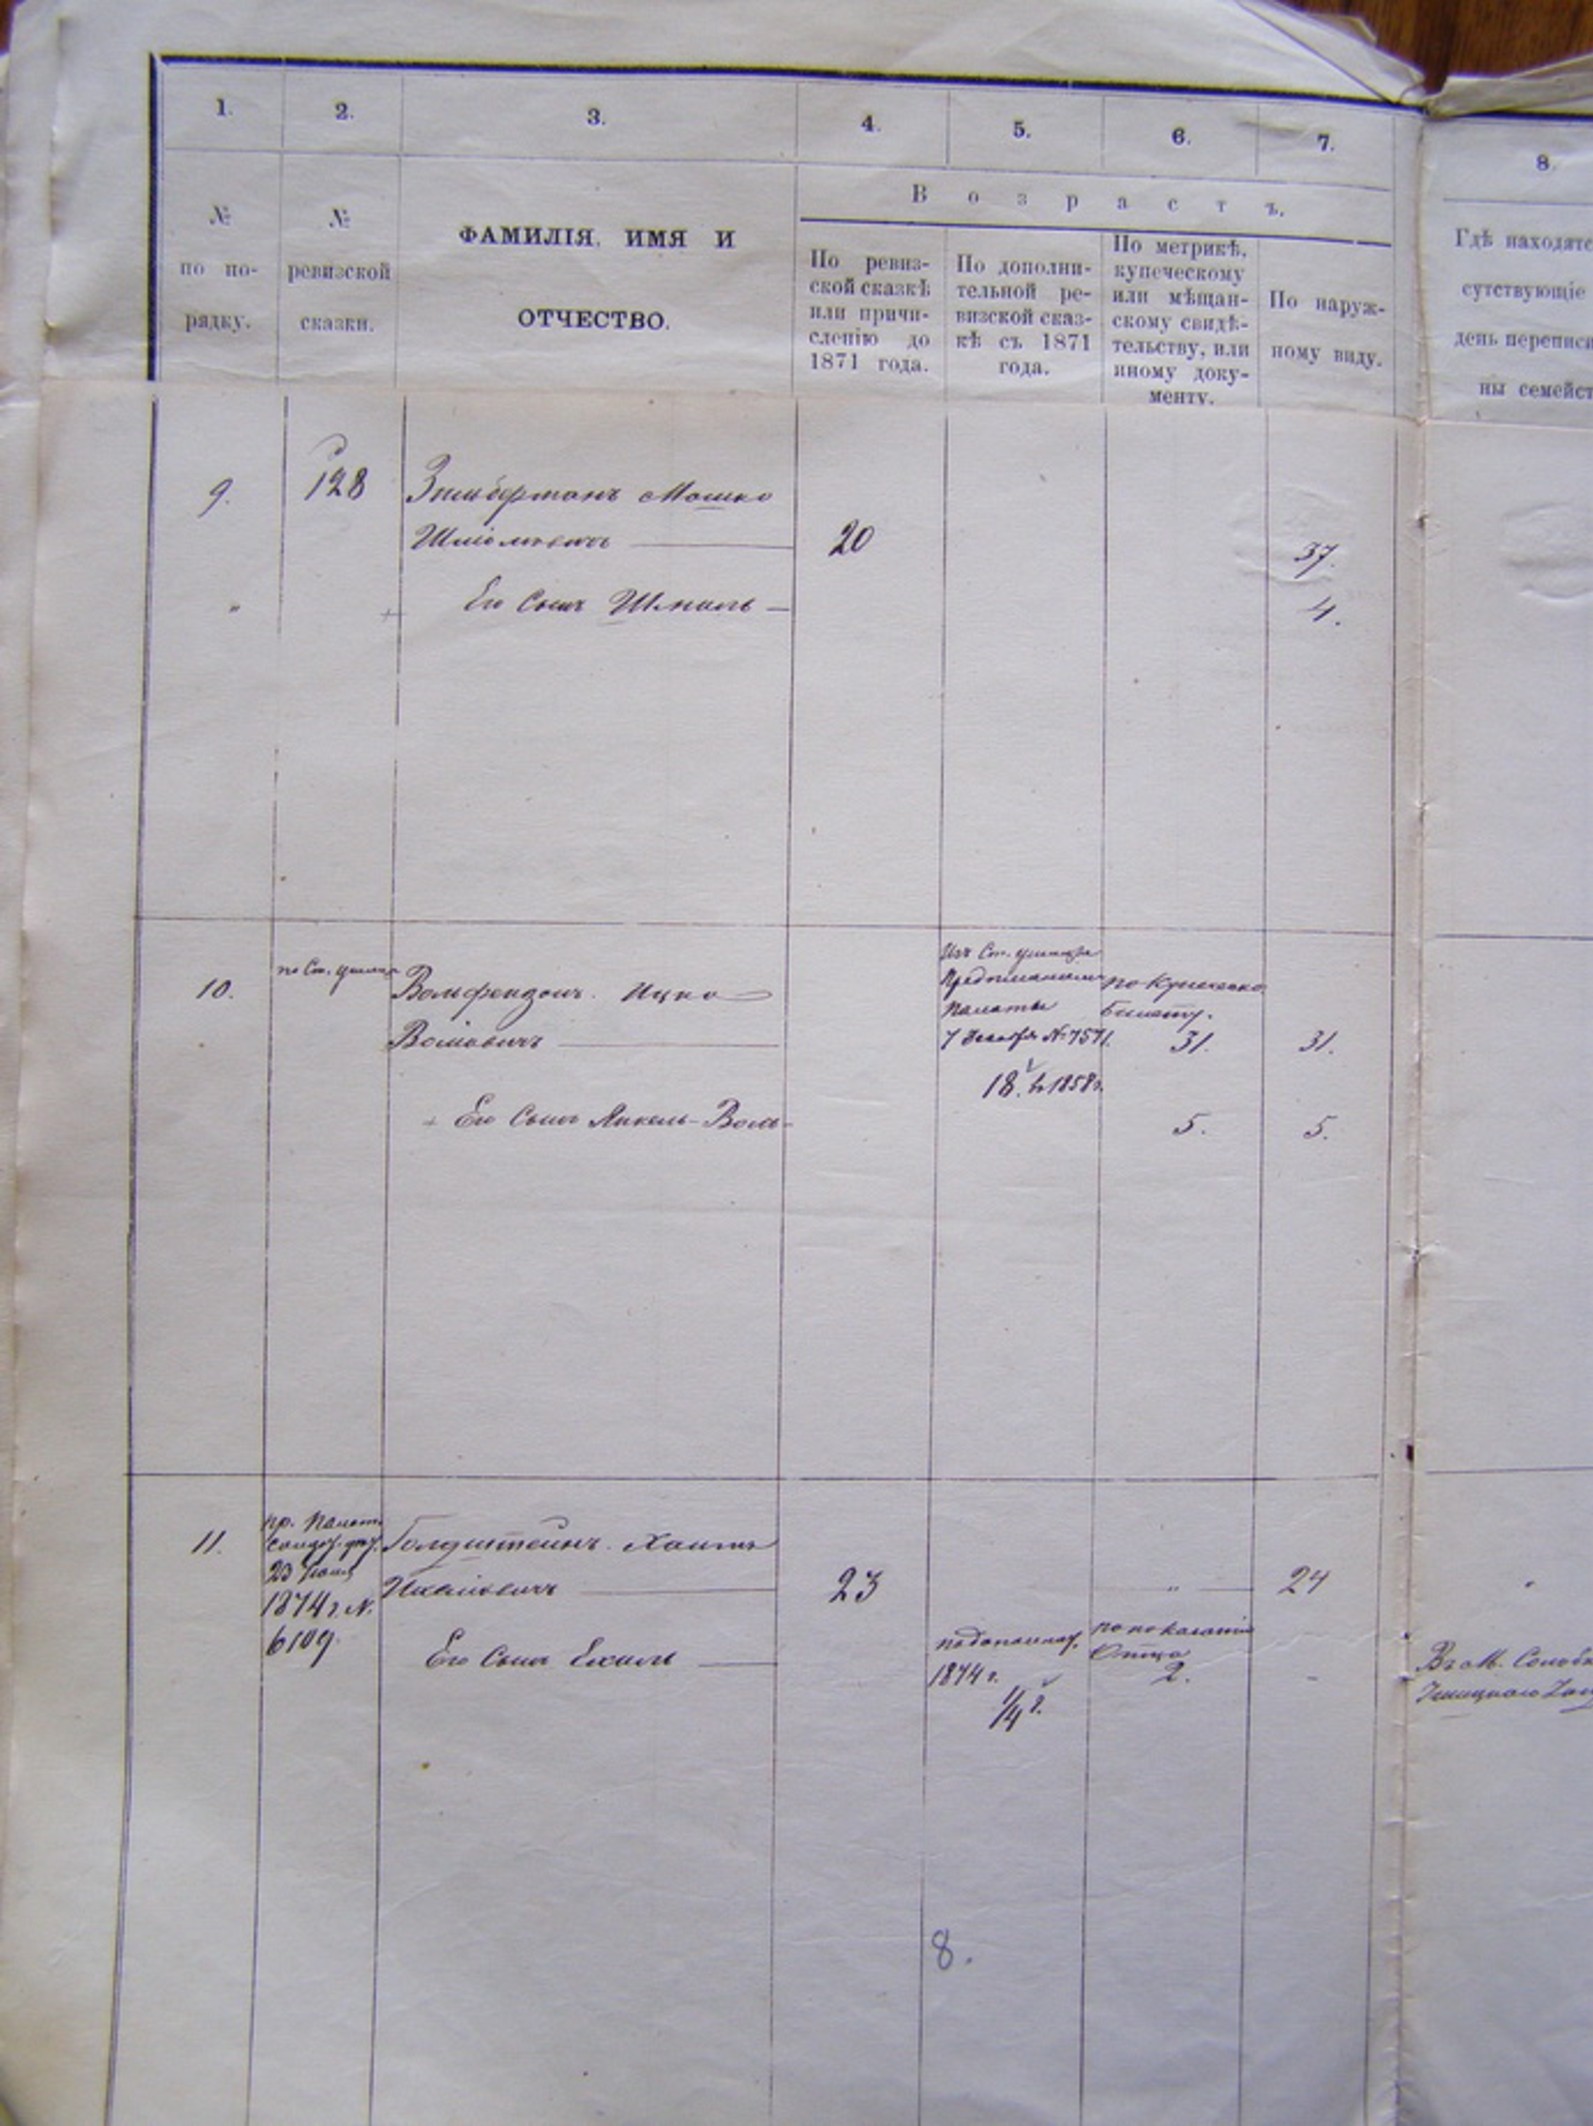 1.
2.
3.
4.
5.
6.
7.
8.
№
по по-
рядку.
№
ревизской
сказки.
ФАМИЛІЯ, ИМЯ И
ОТЧЕСТВО.
Возрастъ.
По ревиз-
ской сказкѣ
или причи-
сленію до
1871 года.
По дополни-
тельной ре-
визской сказ-
кѣ съ 1871
года.
По метрикѣ,
купеческому
или мѣщан-
скому свидѣ-
тельству, или
иному доку-
менту.
По наруж-
ному виду.
Гдѣ находятс
сутствующіе
день переписи
ны семейст
9.
128
Зильберманъ Мошко
Шліомовичъ
20
37.
"
Его Сынъ Шмиль
4.
10.
по Ст.
Вольфензонъ Ицко
Воліовичъ
Изъ Ст.
Предписаніемъ
Палаты
7 Декабря № 7571.
18. въ 1858 г.
по Купеческо
билету.
31.
31.
+ Его Сынъ Янкель-Воль-
5.
5.
11.
пр. Палаты
23
1874 г. №.
6109.
Голдштейнъ Хаимъ
Ихелiовичъ
23
"
24
"
Его Сынъ Ехиль
1874 г.
1/4 г.
по показанію
Отца
2.
-
Въ М.
8.